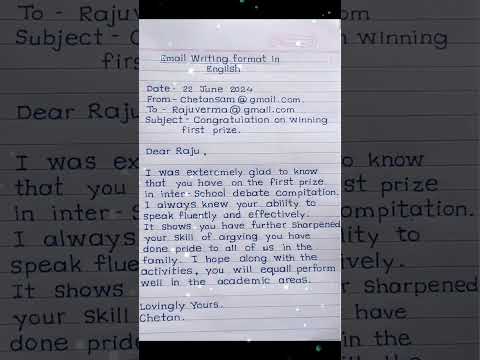 Email Writing format in
English
Date - 22 June 2024
From - Chetansam@gmail.com.
To - Rajuverma@gmail.com
Subject - Congratulation on winning
first prize.
Dear Raju,
I was extercmely glad to know
that you have on the first prize
in inter-School debate compitation.
I always knew your ability to
speak fluently and effectively.
It shows you have further sharpened
your skill of argving you have
done pride to all of us in the
family. I hope along with the
activities, you will equall perform
well in the academic areas.
Lovingly Yours.
Chetan.